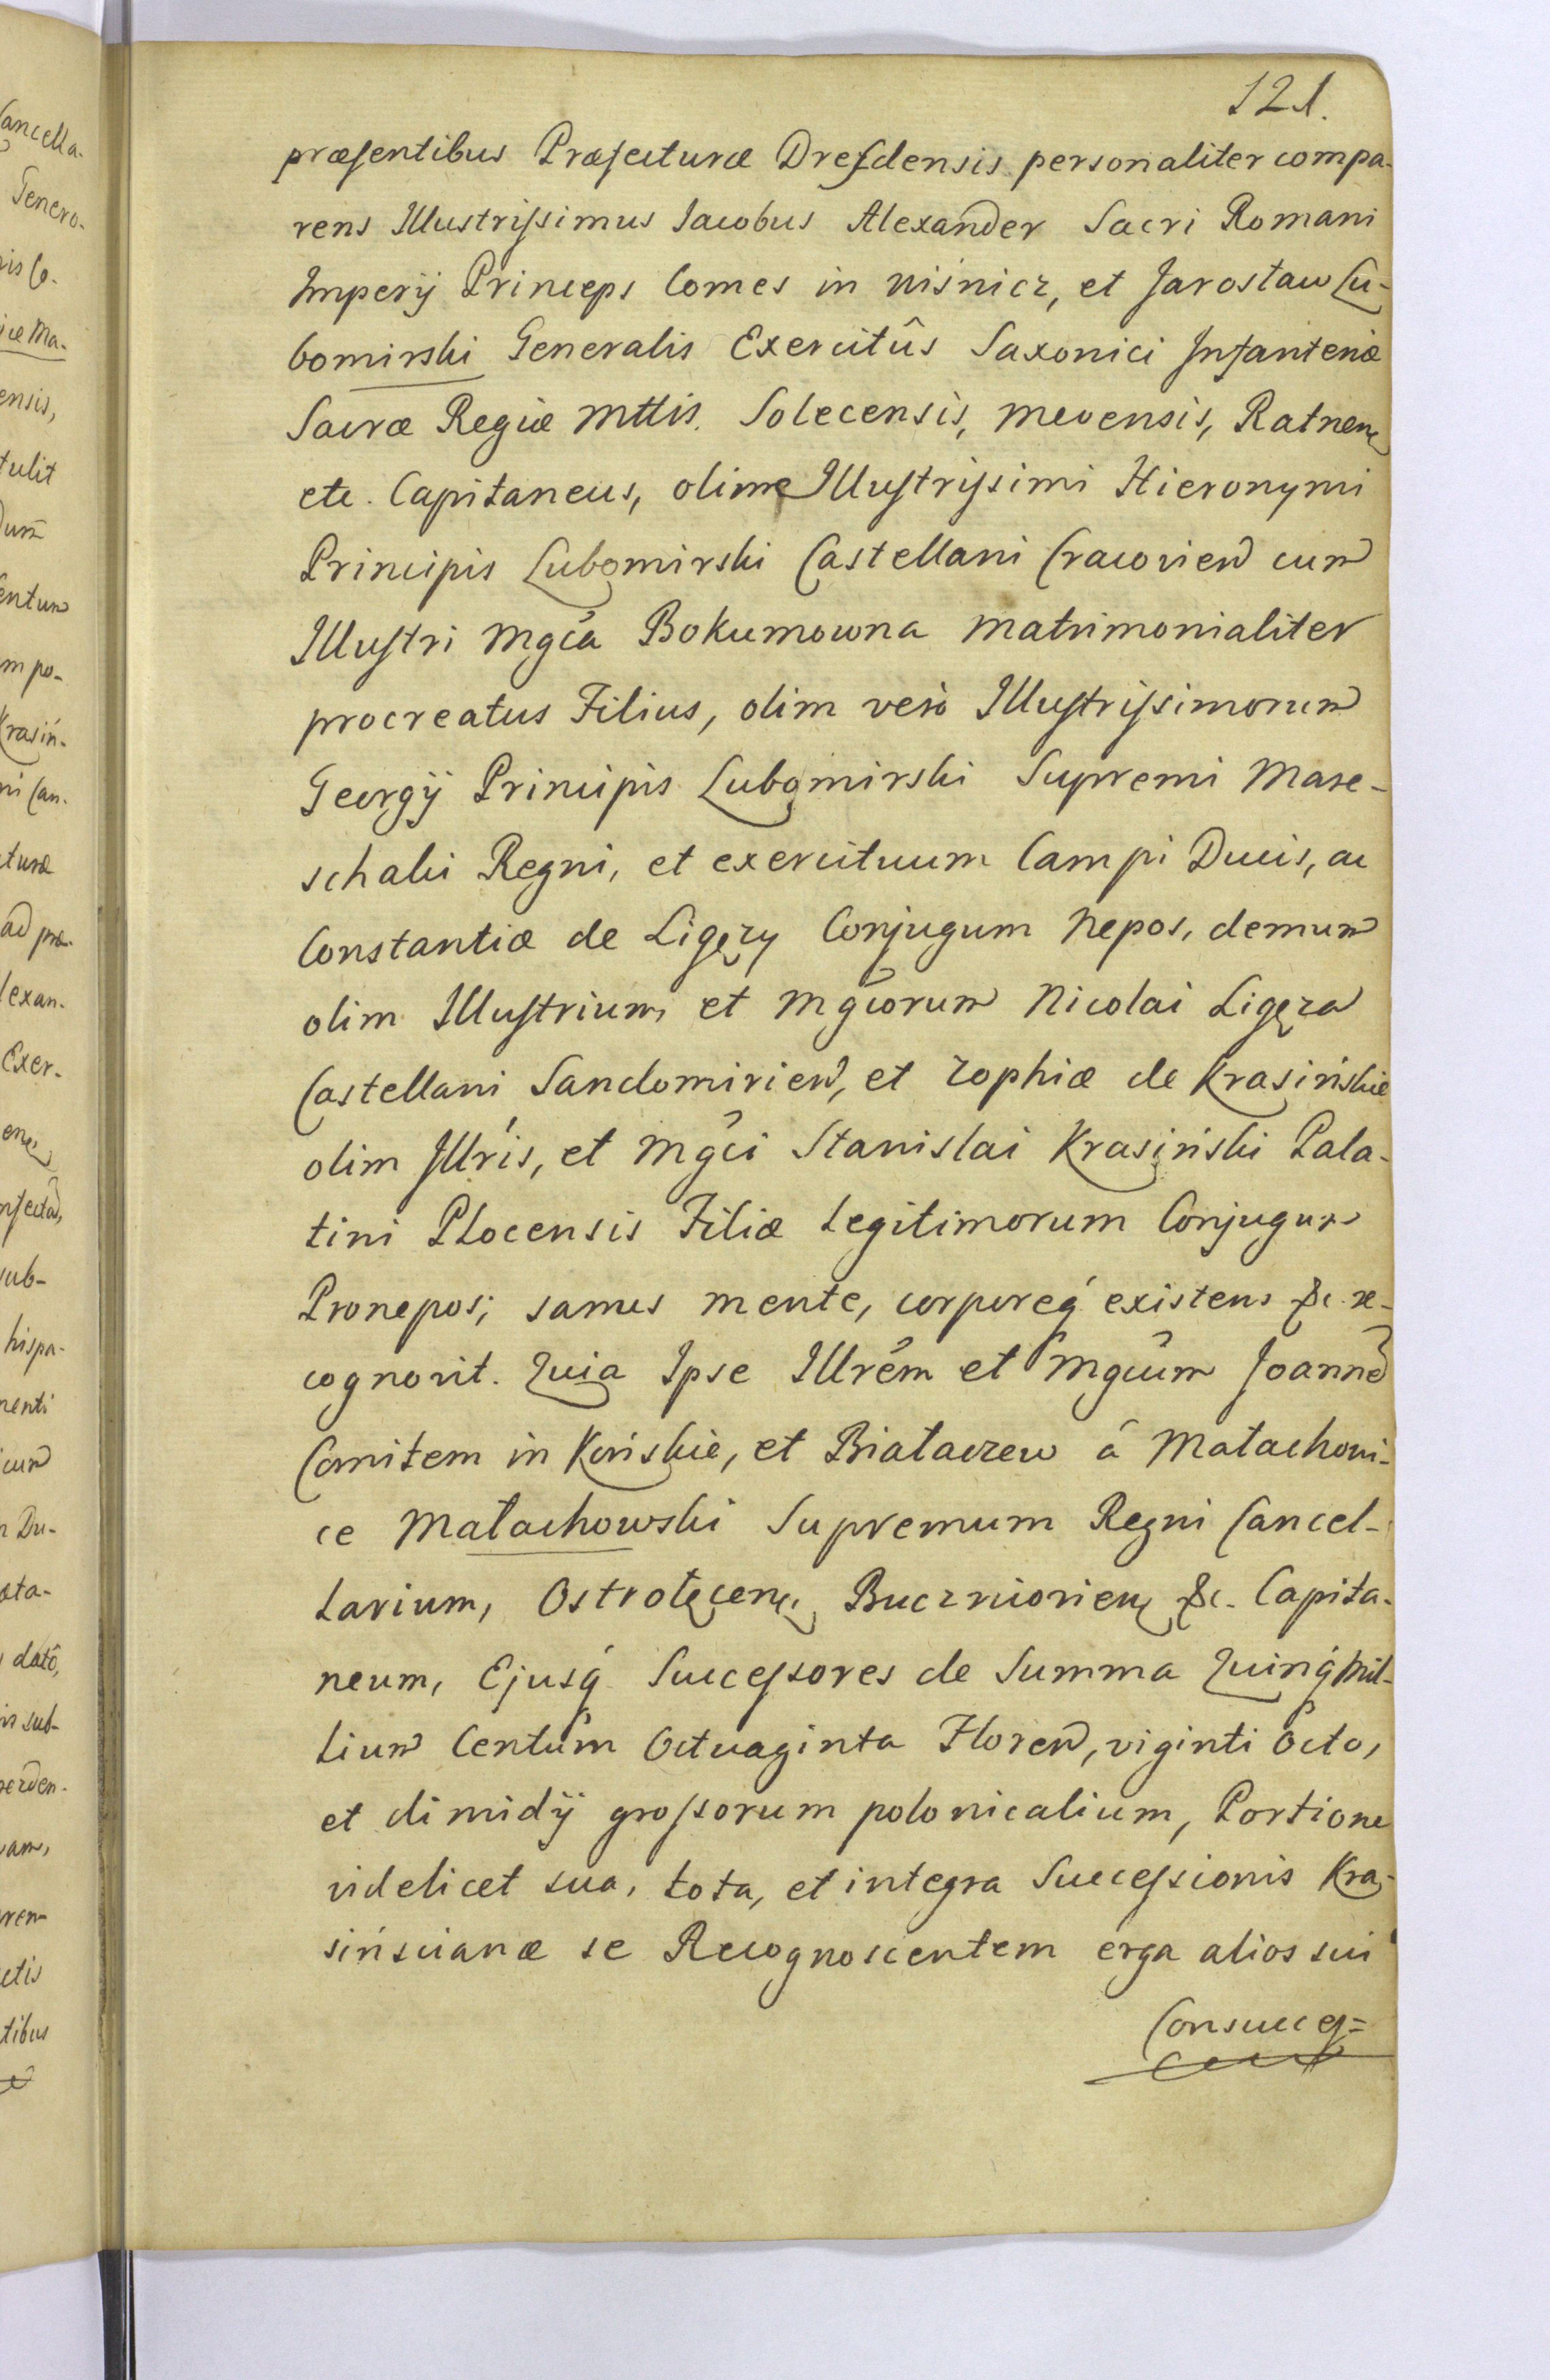 121.
præsentibus Præfecturæ Dresdensis personaliter compa-
rens Illustrissimus Iacobus Alexander Sacri Romani
Imperÿ Princeps Comes in Wiśnicz, et Jarosław Lu-
bomirski Generalis Exercitûs Saxonici Infanteriæ
Sacræ Regiæ Mttis. Solecensis, Mevensis, Ratnen
etc. Capitaneus, olim Illustrissimi Hieronymi
Principis Lubomirski Castellani Cracovien cum
Illustri Mgca Bokumowna matrimonialiter
procreatus Filius, olim verò Illustrissimorum
Georgÿ Principis Lubomirski Supremi Mare-
schalci Regni, et exercituum Campi Ducis, ac
Constantiæ de Ligęzy Conjugum Nepos, demum
olim Illustrium et Mgcorum Nicolai Ligęza
Castellani Sandomirien, et Zophiæ de Krasińskie
olim Illris, et Mgci Stanislai Krasiński Pala-
tini Plocensis Filiæ Legitimorum Conjugum
Pronepos; sanus mente, corporeq́ existens &c. re-
cognovit. Quia Ipse Illrem et Mgcum Joannem
Comitem in Końskie, et Białaczew á Małachowi-
ce Małachowski Supremum Regni Cancel-
larium, Ostrołęcen, &c. Capita-
neum, Ejusq́ Successores de Summa Quinq́ Mil-
lium Centum Octuaginta Floren, viginti Octo,
et dimidÿ grossorum polonicalium, Portione
videlicet sua, tota, et integra Successionis Kra-
sińscianæ se Recognoscentem erga alios sui
Consucces=
Cancella-
Genero-
ensis,
tulit
entum
m po-
Krasiń-
ni Can-
turæ
ad præ-
lexan-
Exer-
sub-
hispa-
menti
cum
n Du-
ata-
datô,
is sub-
ctis
tibus